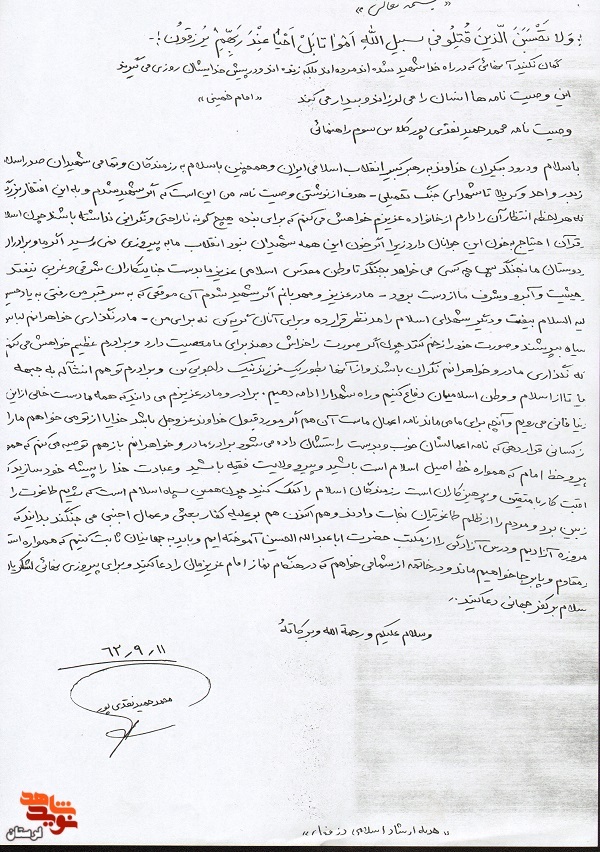 « بسمه تعالی »
: وَلا تَحْسَبَنَ الَّذینَ قُتِلُو فی سبیل الله اَمْواتا بَلْ اَحْیاٌ عِنْدَ رَبِّهِمْ یُرزقُون :-
گمان نکنید آنهائی که در راه خدا شهید شده اند مرده اند بلکه زنده اند و در پیش خدایشان روزی می گیرند
این وصیت نامه ها انسان را می لرزاند و بیدار می کند « امام خمینی »
وصیت نامه محمد حمید نقدی پور کلاس سوم راهنمائی
باسلام و درود بیکران خداوند به رهبر کبیر انقلاب اسلامی ایران و همچنین باسلام به رزمندگان و تمامی شهیدان صدر اسلا
ز بدر و احد و کربلا تا شهدای جنگ تحمیلی - هدف از نوشتن وصیت نامه من این است که اگر شهید شدم و به این افتخار بزرگ
که هر لحظه انتظار آن را دارم از خانواده عزیزم خواهش می کنم که برای بنده هیچ گونه ناراحتی و نگرانی نداشته باشند چون اسلا
قرآن احتیاج به خون این جوانان دارد زیرا اگر خون این همه شهیدان نبود انقلاب ما به پیروزی نمی رسید اگر ما و برادران
دوستان ما نجنگند پس چه کسی می خواهد بجنگد تا وطن مقدس اسلامی عزیز ما بدست جنایتکاران شرقی و غربی نیفتد
حیثیت و آبرو و شرف ما از دست برود - مادر عزیز و مهربانم اگر شهید شدم آن موقعی که به سر قبر من رفتی به یاد حسین
لیه السلام بیفت و دیگر شهدای اسلام را مد نظر قرار ده و برای آنان گریه کن نه برای من - مادر نگذاری خواهرانم لباس
سیاه بپوشند و صورت خود را زخم کنند چون اگر صورت را خراش دهند برای ما معصیت دارد و برادرم عظیم خواهش می کنم
که نگذاری مادر و خواهرانم نگران باشند و از آنها بطور یک فرزند نیک دلجویی کن و برادرم تو هم انشاالله به جبهه
یا تا از اسلام و وطن اسلامیمان دفاع کنیم و راه شهدا را ادامه دهیم. برادر و مادر عزیزم می دانید که همه ما دست خالی از این
دنیا فانی می رویم و آنچه برای ما می ماند نامه اعمال ماست آن هم اگر مورد قبول خداوند عزوجل باشد خدایا از تو می خواهم ما را
ز کسانی قرار دهی که نامه اعمالشان خوب و بدست راستشان داده می شود برادر، مادر و خواهرانم باز هم توصیه می کنم که همو
پیرو خط امام که همواره خط اصیل اسلام است باشید و پیرو ولایت فقیه باشید و عبادت خدا را پیشه خود سازید که
اقبت کار با متقین و پرهیزکاران است رزمندگان اسلام را کمک کنید چون همین سپاه اسلام است که رژیم طاغوت را
ز بین برد و مردم را از ظلم طاغوتیان نجات دادند و هم اکنون هم بر علیه کفار بعثی و عمال اجنبی می جنگند بدانند که
مروزه آزادیم و درس آزادگی را از مکتب حضرت اباعبدالله الحسین آموخته ایم و باید به جهانیان ثابت کنیم که همواره است
مقاوم و پا برجا خواهیم ماند و در خاتمه از شما می خواهم که در هنگام نماز امام عزیزمان را دعا کنید و برای پیروزی نهائی لشکریان
سلام بر کفر جهانی دعا کنید..
وسلام علیکم و رحمة الله و برکاتهُ
۶۲٫۹٫۱۱
محمد حمید نقدی پور
نوید شاهد
لرستان